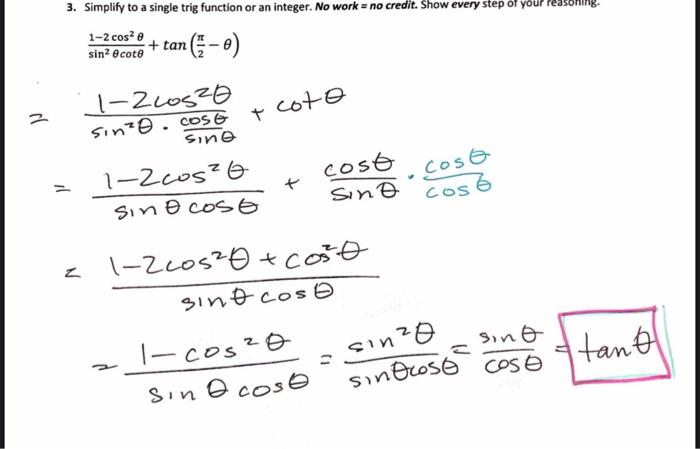 3. Simplify to a single trig function or an integer. No work = no credit. Show every step of your reasoning.
(1-2 cos² θ)/(sin² θ cot θ) + tan(π/2 - θ)
= (1-2cos²θ)/(sin²θ · cosθ/sinθ) + cotθ
= (1-2cos²θ)/(sinθ cosθ) + cosθ/sinθ · cosθ/cosθ
= (1-2cos²θ + cos²θ)/(sinθ cosθ)
= (1-cos²θ)/(sinθ cosθ) = sin²θ/(sinθcosθ) = sinθ/cosθ = tanθ